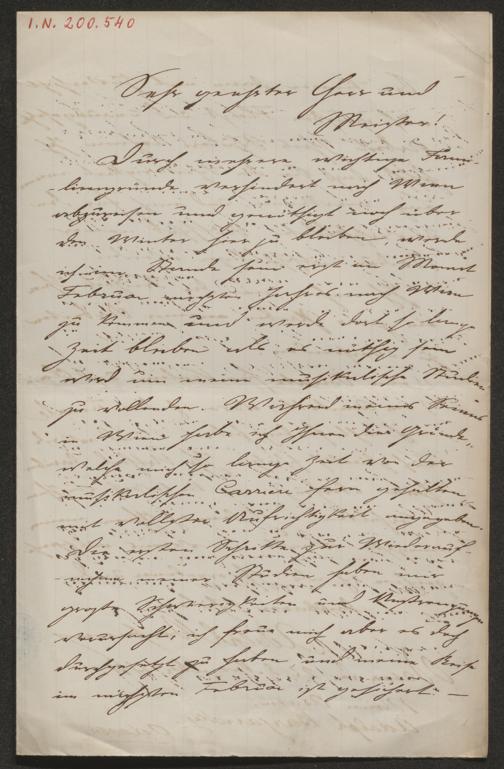 I.N. 200.540
Sehr geehrter Herr und
Meister!
Durch mehrere wichtige Fami-
liengründe verhindert nach Wien
abzureisen und genöthigt noch über
den Winter hier zu bleiben, werde
ich im Stande sein erst im Monat
Februar nächsten Jahres nach Wien
zu kommen und werde dort so lange
Zeit bleiben als es nöthig sein
wird um meine musikalische Studien
zu vollenden. Während meines Seins
in Wien habe ich Ihnen die Gründe,
welche mich so lange Zeit von der
musikalischen Carriere fern gehalten
mit vollster Aufrichtigkeit angegeben.
Die ersten Schritte zur Wiederauf-
nahme meiner Studien haben mir
große Schwierigkeiten und Anstrengungen
verursacht; ich freue mich aber es doch
durchgesetzt zu haben und meine Reise
im nächsten Februar ist gesichert. —